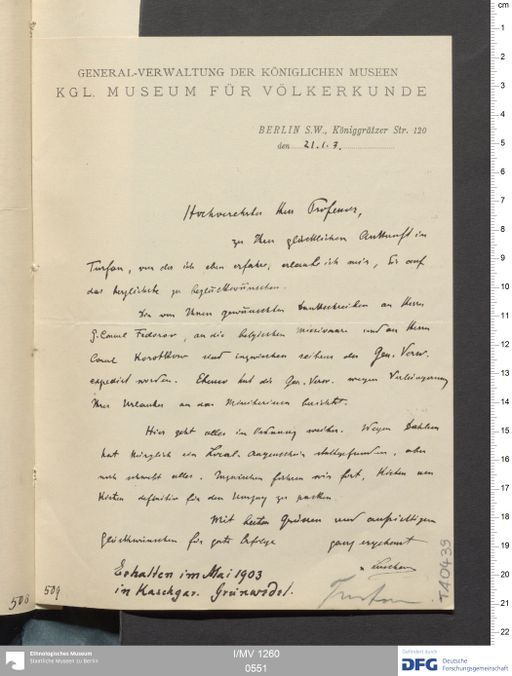 GENERAL-VERWALTUNG DER KÖNIGLICHEN MUSEEN
KGL. MUSEUM FÜR VÖLKERKUNDE
BERLIN S.W., Königgrätzer Str. 120
den 21.1.3.
Hochverehrter Herr Professor,
zu Ihrer glücklichen Ankunft in
Turfan, von der ich eben erfahre, erlaube ich mir, Sie auf
das herzlichste zu beglückwünschen.
Die von Ihnen gewünschten Dankschreiben an Herrn
G. Consul Fedorov, an die belgischen Missionare und an Herrn
Consul Korotkow sind inzwischen seitens der Gen. Verw.
expedirt worden. Ebenso hat die Gen. Verw. wegen Verlängerung
Ihres Urlaubes an das Ministerium berichtet.
Hier geht alles in Ordnung weiter. Wegen Dahlem
hat kürzlich ein Local-Augenschein stattgefunden, aber
noch schwebt alles. Inzwischen fahren wir fort, Kisten um
Kisten definitiv für den Umzug zu packen.
Mit besten Grüssen und aufrichtigen
Glückwünschen für gute Erfolge ganz ergebenst
v Luschan
Erhalten im Mai 1903
in Kaschgar. Grünwedel.
Turfan
TA0439
508
509
Ethnologisches Museum
Staatliche Museen zu Berlin
I/MV 1260
0551
Gefördert durch
DFG Deutsche
Forschungsgemeinschaft
cm
1
2
3
4
5
6
7
8
9
10
11
12
13
14
15
16
17
18
19
20
21
22